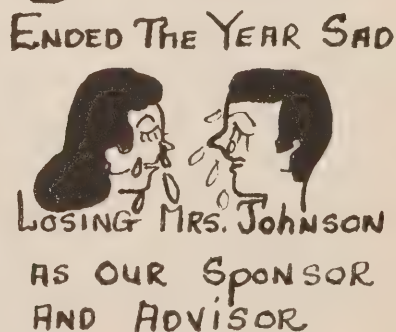 ENDED THE YEAR SAD
LOSING MRS. JOHNSON
AS OUR SPONSOR
AND ADVISOR